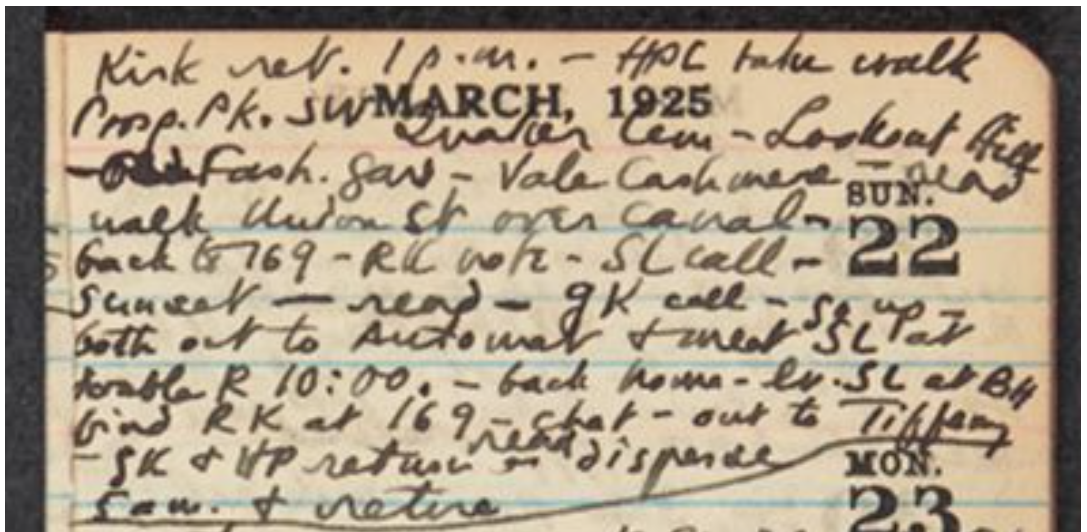 Kirk ret. 1 p.m. – HPL take walk
MARCH, 1925
Prosp. Pk. SW Quaker Cem – Lookout Hill
– Fash. Gar – Vale Cashmere – read
SUN.
walk Union St over Canal –
22
back to 169 – RK note – SL call –
Sunset — read – GK call – go up –
both out to Automat & meet SL at
R 10:00. – back home – lv. SL at BH
find RK at 169 – chat – out to Tiffany
– GK & HP return read disperse
MON.
5 a.m. & retire
23